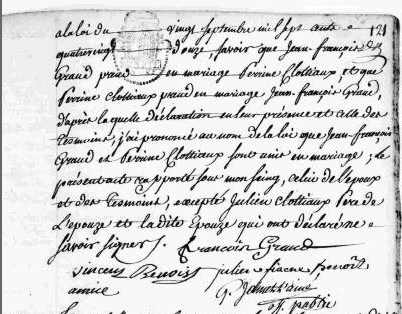 121
a la loi du vingt septembre mil sept cents
quatrevingt douze, savoir que Jean-françois
Graud prend en mariage Perrine Clottiaux et que
Perrine Clottiaux prend en mariage Jean-françois Graud,
d'après la quelle déclaration en leur présence et celle des
Tesmoins, j'ai prononcé au nom de la loi que Jean-françois
Graud et Perrine Clottiaux sont unis en mariage; le
présent acte rapporté sous mon seing, celui de l'epoux
et des Tesmoins, excepté Julien Clottiaux Pere de
L'epouze et la dite Epouze qui ont déclaré ne
savoir signer /. francois Graud
vincens Benoist julien fiacre benoist
amice